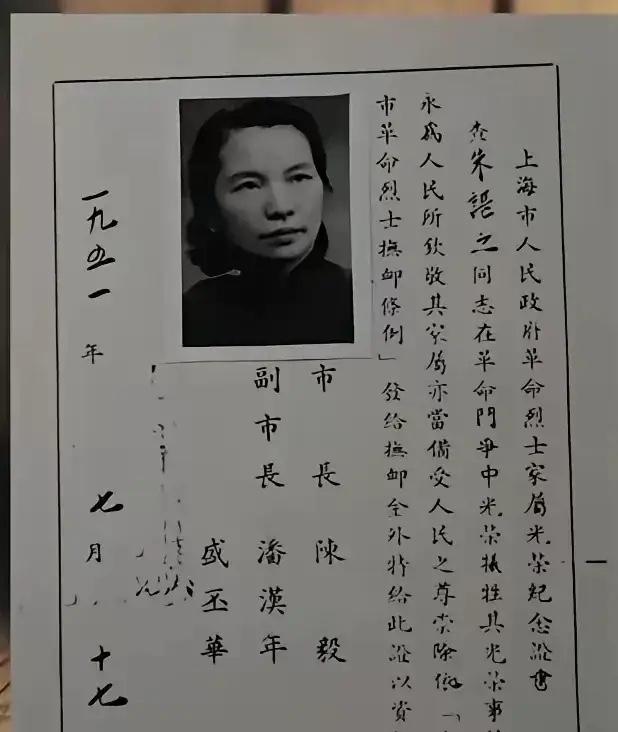 上海市人民政府革命烈士家屬光榮紀念證書
查朱諶之同志在革命鬥爭中光榮犧牲其光榮事
永為人民所欽敬其家屬亦當備受人民之尊崇除依「
市革命烈士撫卹條例」發給撫卹金外特給此證以資
市長 陳毅
副市長 潘漢年
盛丕華
一九五一年七月十七